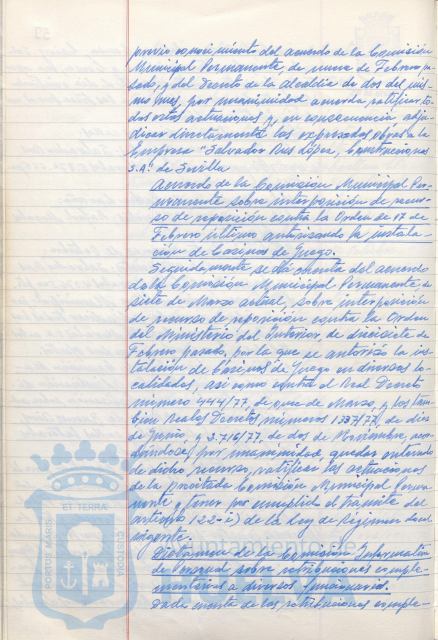 previo conocimiento del acuerdo de la Comisión
Municipal Permanente, de nueve de Febrero pa-
sado, y del Decreto de la Alcaldía de dos del mis-
mo mes, por unanimidad acuerda ratificar to-
dos estos actuaciones y, en consecuencia adju-
dicar directamente las expresadas obras a la
Empresa "Salvador Rus López, Construcciones
S.A." de Sevilla
Acuerdo de la Comisión Municipal Per-
manente sobre interposición de recur-
so de reposición contra la Orden de 17 de
Febrero último autorizando la instala-
ción de Casinos de Juego.
Seguidamente se dá cuenta del acuerdo
de la Comisión Municipal Permanente, de
siete de Marzo actual, sobre interposición
de recurso de reposición contra la Orden
del Ministerio del Interior, de diecisiete de
Febrero pasado, por la que se autorizo la ins-
talación de Casinos de Juego en diversas lo-
calidades, así como contra el Real Decreto
número 444/77, de once de Marzo, y los tam-
bien Reales Decretos números 1337/77, de diez
de Junio, y 3.716/77, de dos de Noviembre, acor-
dándose, por unanimidad, quedar enterado
de dicho recurso, ratificar las actuaciones
de la precitada Comisión Municipal Perma-
nente y tener por cumplido el trámite del
artículo 122-i) de la Ley de Régimen Local
vigente.
Dictamen de la Comisión Informativa
de Personal sobre retribuciones comple-
mentarias a diversos funcionarios.
Dada cuenta de las retribuciones comple-
PORTUS MARIS
ET TERRA
CUSTODIA
Ayuntamiento de